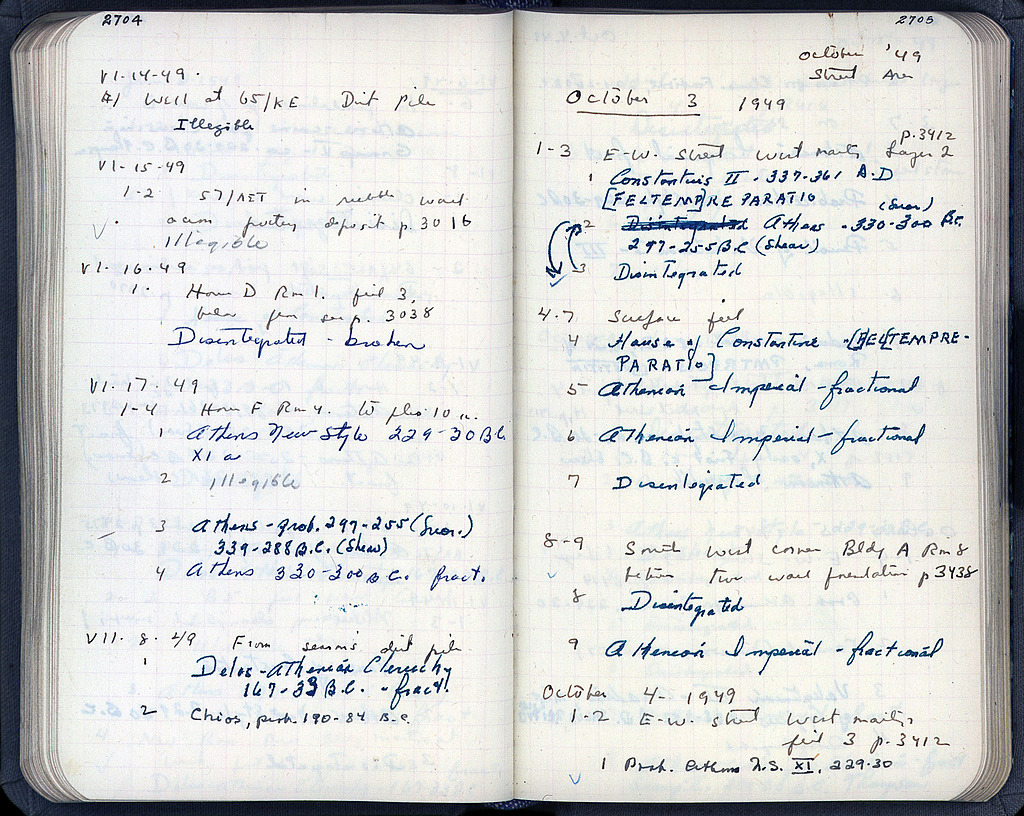 2704
VI-14-49.
#1 Well at 65/KE Dirt Pile
Illegible
VI-15-49
1-2 57/ in rubble wall
pottery deposit p. 3016
Illegible
VI-16-49
1. House D Rm 1. fill 3,
below see p. 3038
Disintegrated - broken
VI-17-49
1-4 House F Rm 4. to
1 Athens New Style 229-30 B.C.
XI a
2 illegible
3 Athens - prob. 297-255 (Svor.)
339-288 B.C. (Shear)
4 Athens 330-300 B.C. fract.
VII. 8. 49 From season's dirt pile
1 Delos-Athenian Cleruchy
167-33 B.C. - fract.
2 Chios, prob. 190-84 B.C.
2705
October '49
Street Area
October 3 1949
p. 3412
1-3 E-W. street west Layer 2
1 Constantius II - 337-361 A.D
[FELTEMP]REPARATIO
2 Disintegrated Athens - 330-300 B.C. (Svor.)
297-255 B.C. (Shear)
3 Disintegrated
4-7 Surface fill
4 House of Constantine - [FELTEMPRE-
PARATIO]
5 Athenian Imperial - fractional
6 Athenian Imperial - fractional
7 Disintegrated
8-9 South west corner Bldg A Rm 8
between two wall foundation p 3438
8 Disintegrated
9 Athenian Imperial - fractional
October 4 - 1949
1-2 E-W. street west
fill 3 p. 3412
1 Prob. Athens N.S. XI, 229-30